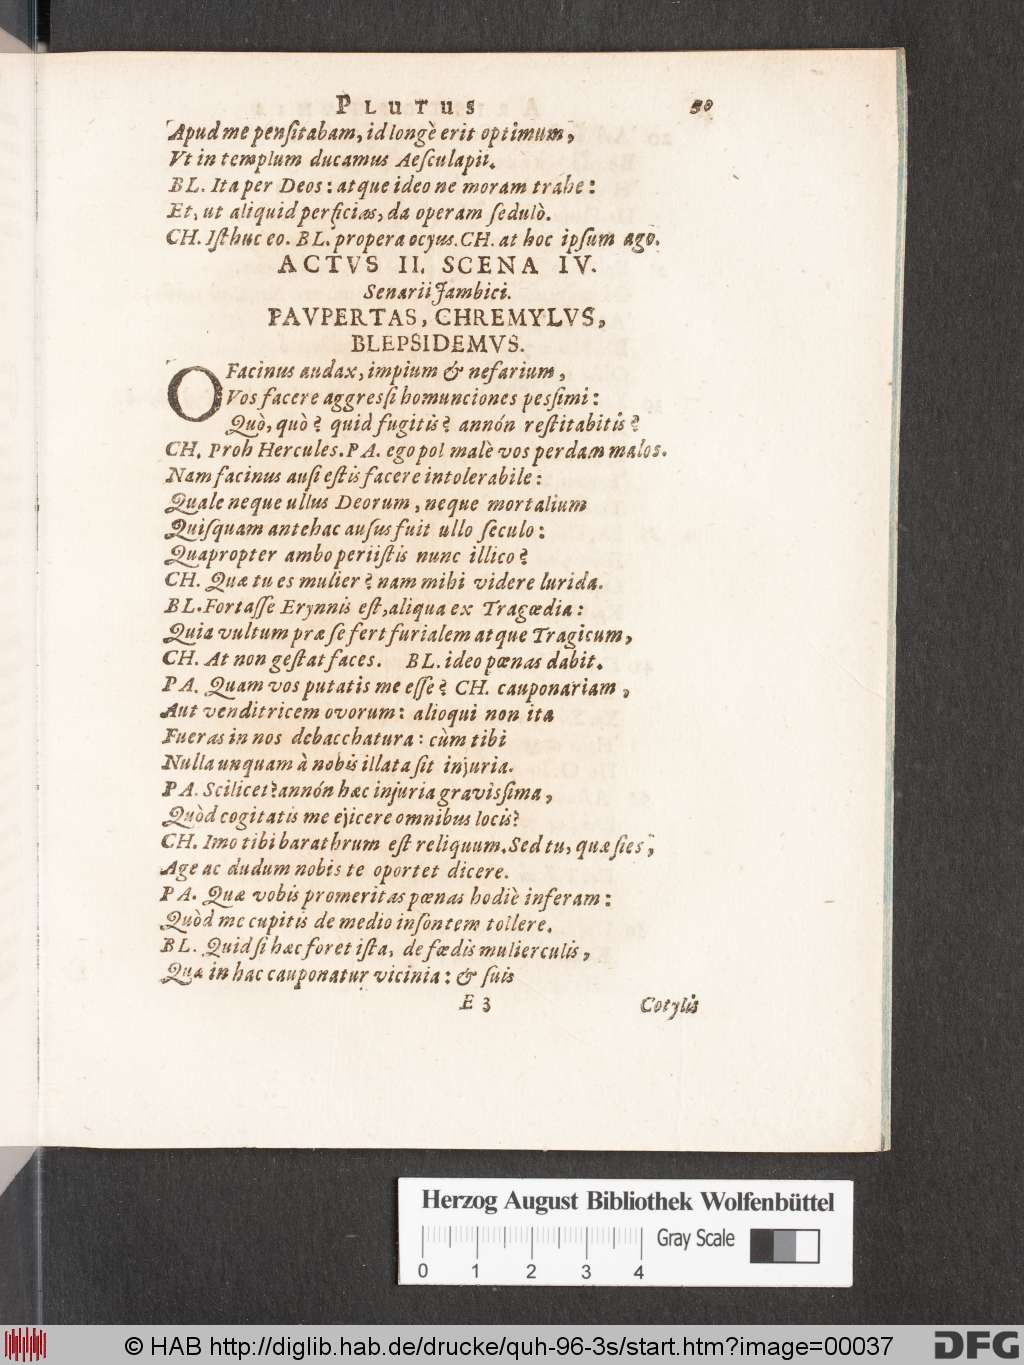 PLUTUS 50
Apud me penſitabam, id longè erit optimum,
Vt in templum ducamus Aeſculapii.
BL. Ita per Deos: atque ideo ne moram trahe:
Et, ut aliquid perficias, da operam ſedulò.
CH. Iſthuc eo. BL. propera ocyus. CH. at hoc ipſum ago.
ACTVS II. SCENA IV.
Senarii Jambici.
PAVPERTAS, CHREMYLVS,
BLEPSIDEMVS.
O Facinus audax, impium & nefarium,
Vos facere aggreſſi homunciones peſſimi:
Quò, quò? quid fugitis? annón reſtitabitis?
CH. Proh Hercules. PA. ego pol malè vos perdam malos.
Nam facinus auſi eſtis facere intolerabile:
Quale neque ullus Deorum, neque mortalium
Quiſquam antehac auſus fuit ullo ſeculo:
Quapropter ambo periiſtis nunc illico?
CH. Quæ tu es mulier? nam mihi videre lurida.
BL. Fortaſſe Erynnis eſt, aliqua ex Tragœdia:
Quia vultum præ ſe fert furialem atque Tragicum,
CH. At non geſtat faces. BL. ideo pœnas dabit.
PA. Quam vos putatis me eſſe? CH. cauponariam,
Aut venditricem ovorum: alioqui non ita
Fueras in nos debacchatura: cùm tibi
Nulla unquam à nobis illata ſit injuria.
PA. Scilicet? annón hæc injuria gravìſsima,
Quòd cogitatis me ejicere omnibus locis?
CH. Imo tibi barathrum eſt reliquum. Sed tu, quæ ſies,
Age ac dudum nobis te oportet dicere.
PA. Quæ vobis promeritas pœnas hodiè inferam:
Quòd me cupitis de medio inſontem tollere.
BL. Quid ſi hæc foret iſta, de fœdis mulierculis,
Quæ in hac cauponatur vicinia: & ſuis
E 3 Cotylis
Herzog August Bibliothek Wolfenbüttel
Gray Scale
0 1 2 3 4
© HAB http://diglib.hab.de/drucke/quh-96-3s/start.htm?image=00037 DFG